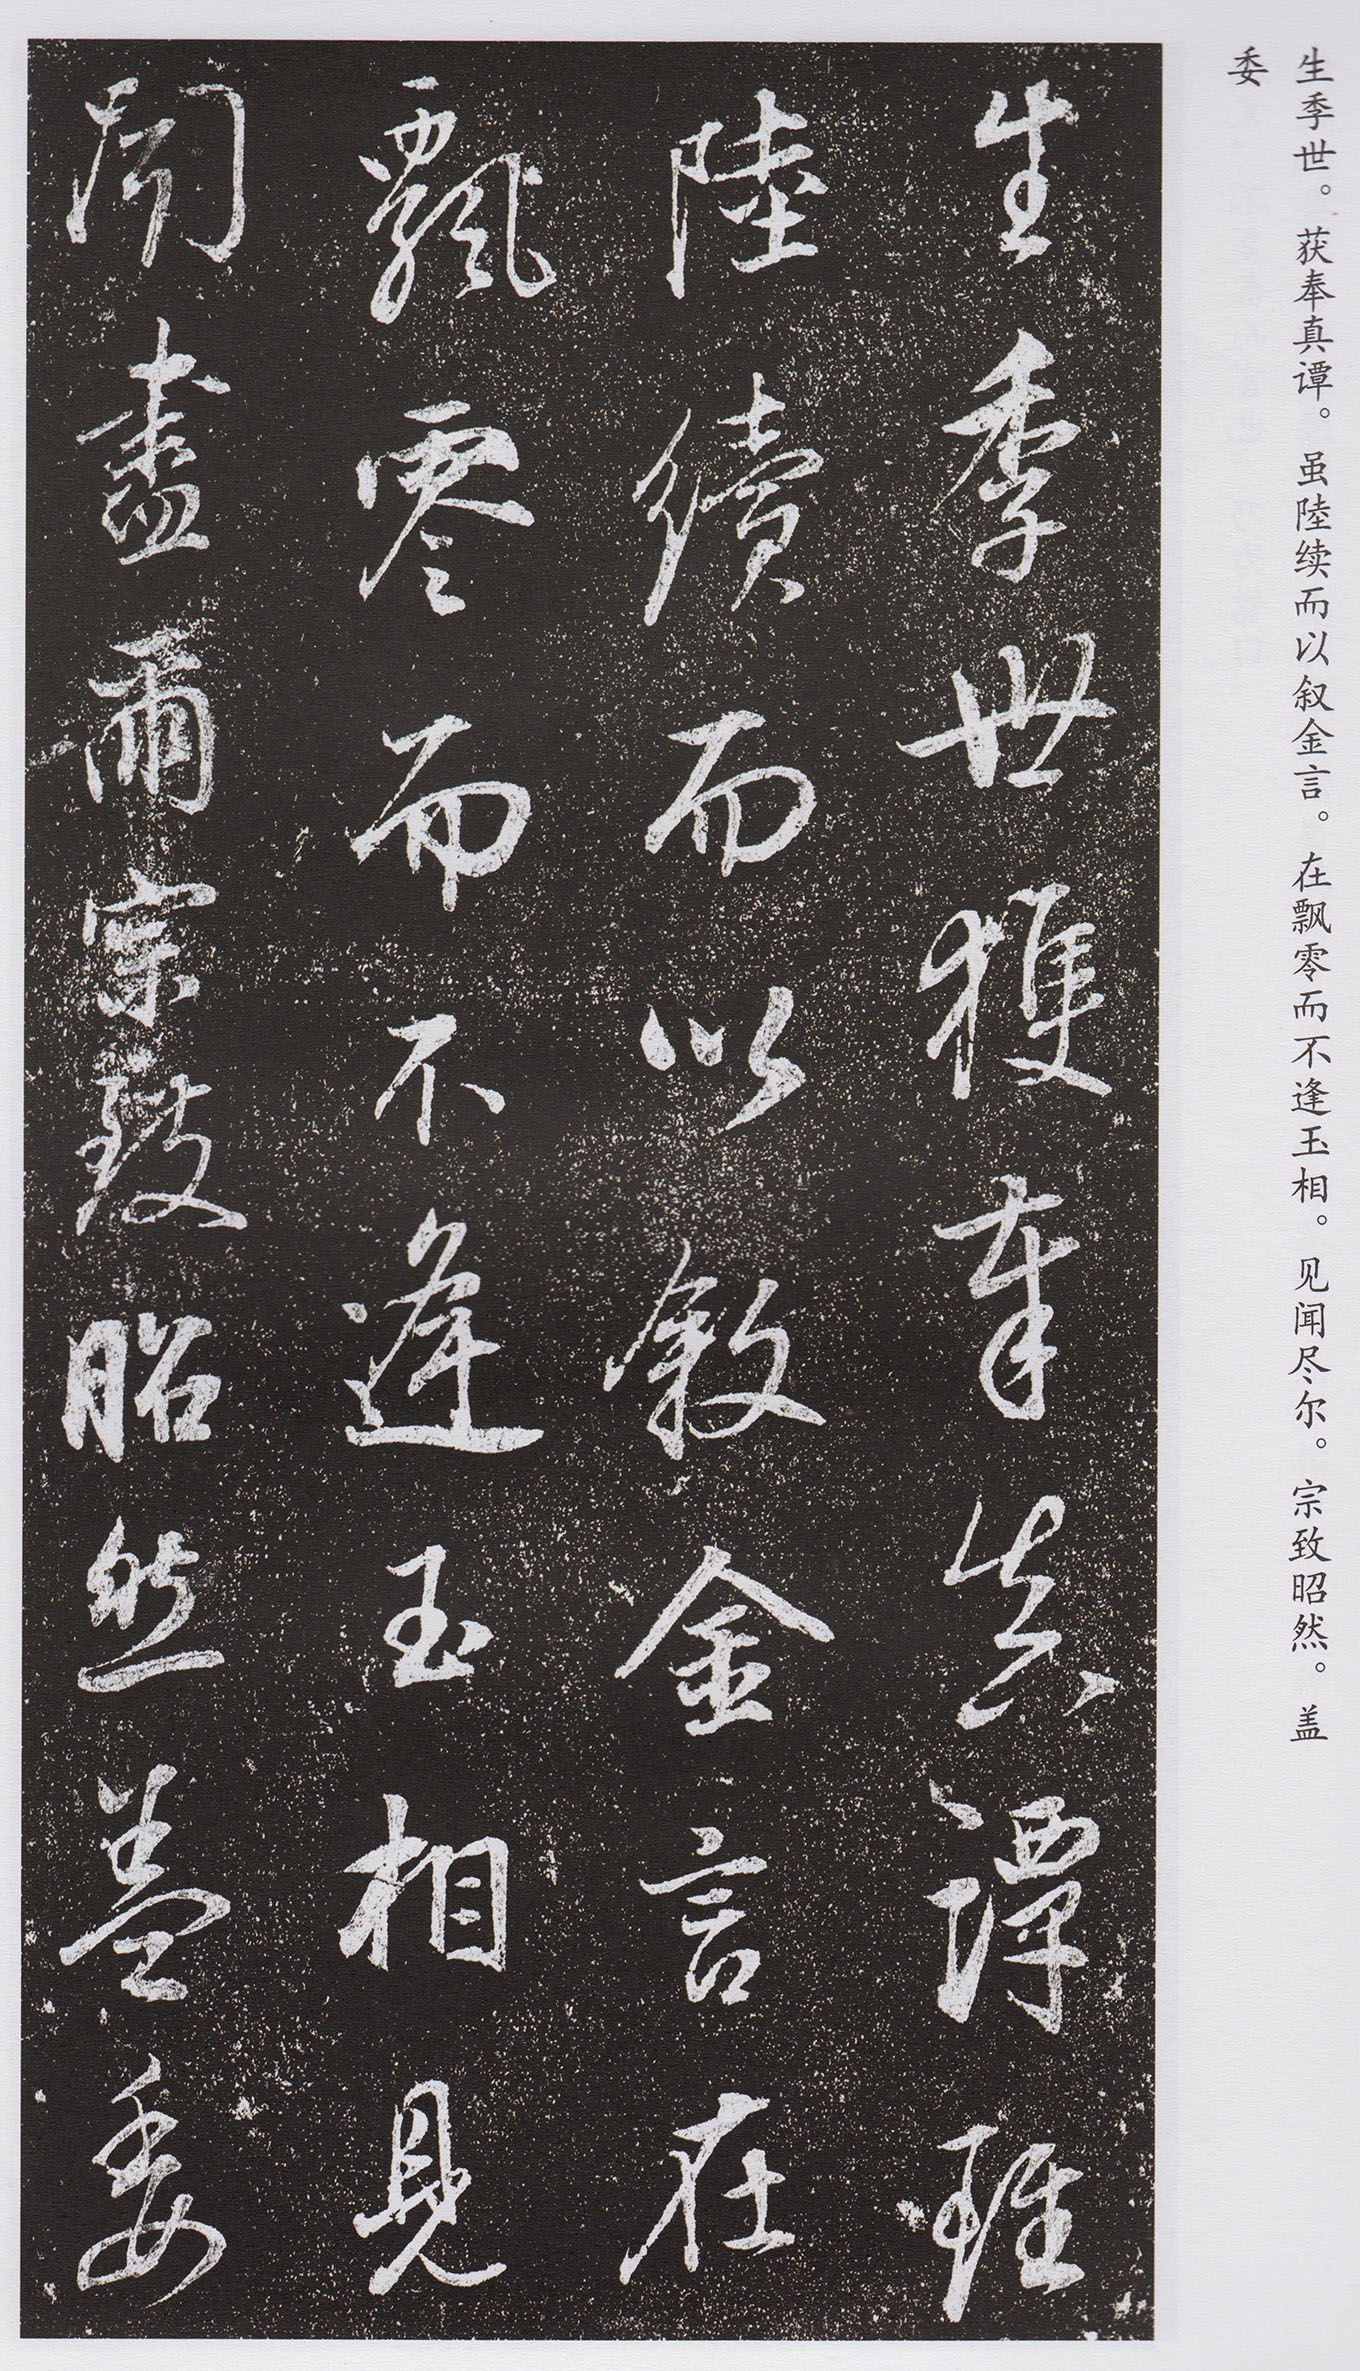 生季世。获奉真谭。虽陸续而以叙金言。在飘零而不逢玉相。见闻尽尔。宗致昭然。盖
委
生季世獲奉真譚雖
陸續而以叙金言在
飄零而不逢玉相見
聞盡爾宗致昭然蓋委